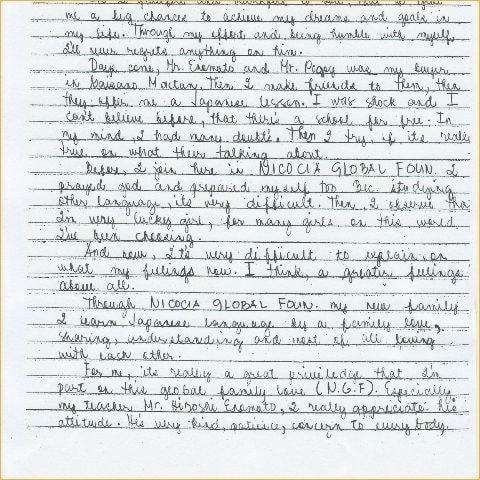 me a big chance to achieve my dreams and goals in
my life. Through my effort and being humble with myself
I'll never regrets anything on him.
Days come, Mr. Enomoto and Mr. Popoy was my buyer
in Gaisano Mactan. Then I make friends to them, then
they offer me a Japanese lesson. I was shock and I
can't believe before, that there's a school for free. In
my mind, I had many doubts. Then I try, if its really
true on what their talking about.
Before, I join here in NICOCIA GLOBAL FOUN. I
prayed god and prepared myself too bec. studying
other language, its very difficult. Then I observe that
I'm very lucky girl, for many girls on this world
I've been choosing.
And now, I'ts very difficult to explain on
what my feelings now. I think, a greater feelings
above all.
Through NICOCIA GLOBAL FOUN. my new family
I learn Japanese language by a family love,
sharing, understanding and most of all loving
with each other.
For me, its really a great priviledge that I'm
part on this global family love (N.G.F). Especially
my teacher Mr. Hiroshi Enomoto, I really appreciate his
attitude. His very kind, patience, concern to every body.